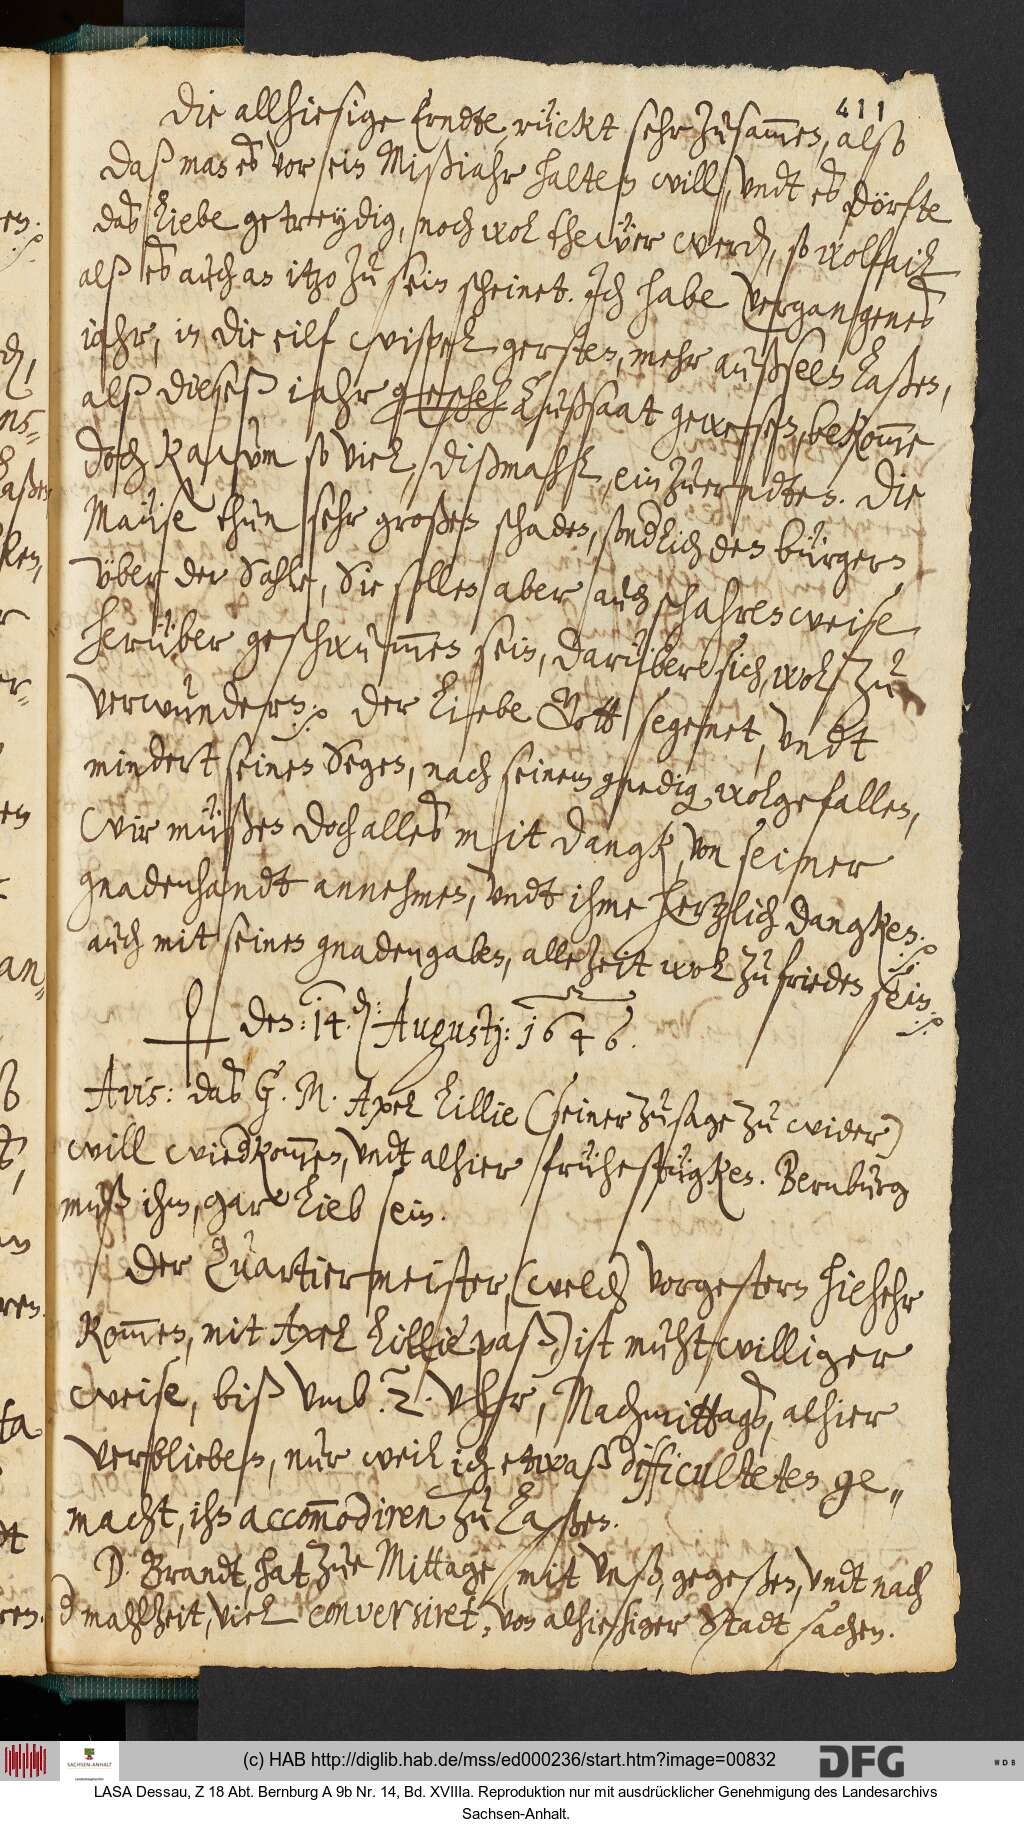 411
Die allhiesige Erndte, rückt sehr zusam̄en, also
daß man es vor ein Mißiahr halten will, undt es dörfte
das liebe getreydig, noch wol theüer werd, so wolfail
alß es auch an itzo zu sein scheinet. Ich habe vergangenes
iahr, in die eilf wispel gersten, mehr außseen laßen,
alß dieseß iahr Außsaat gewesen, bekom̄e
doch kaum so viel, dißmahl, einzuerndten. Die
Maüse thun sehr großen schaden, sondlich den bürgern
über der Sahle, Sie sollen aber auch schahrenweise
herüber geschwum̄en sein, darüber sich, wol zu
verwundern. Der liebe Gott segenet, undt
mindert seinen Segen, nach seinem gnedig wolgefallen,
Wir müßen doch alles mit dangk, von seiner
gnadenhandt annehmen, undt ihme hertzlich dangken.
auch mit seinen gnadengaben, allezeit wol zu frieden sein.
den: 14.d: Augustj: 1646.
Avis: das G. M. Axel Lillie (seiner zusage zu wider)
will wiedkom̄en, undt alhier frühestügken. Bernburg
muß ihm, gar lieb sein.
Der Quartiermeister, (welch vorgestern hiehehr
kom̄en, mit Axel Lillie paß,) ist muhtwilliger
weise, biß umb 2. Uhr, Nachmittags, alhier
verblieben, nur weil ich etwaß difficulteten ge„
macht, ihn accom̄odiren zu laßen.
D. Brandt, hat zue Mittage, mit unß, gegeßen, undt nach
d mahlzeit, viel conversiret, von alhiesiger Stadt sachen.
en.
d,
ns„
laßen
ken,
r
er„
en
an„
ß
t,
en
ren.
ta
dt
ren.
SACHSEN-ANHALT
(c) HAB http://diglib.hab.de/mss/ed000236/start.htm?image=00832
DFG
WDB
LASA Dessau, Z 18 Abt. Bernburg A 9b Nr. 14, Bd. XVIIIa. Reproduktion nur mit ausdrücklicher Genehmigung des Landesarchivs
Sachsen-Anhalt.